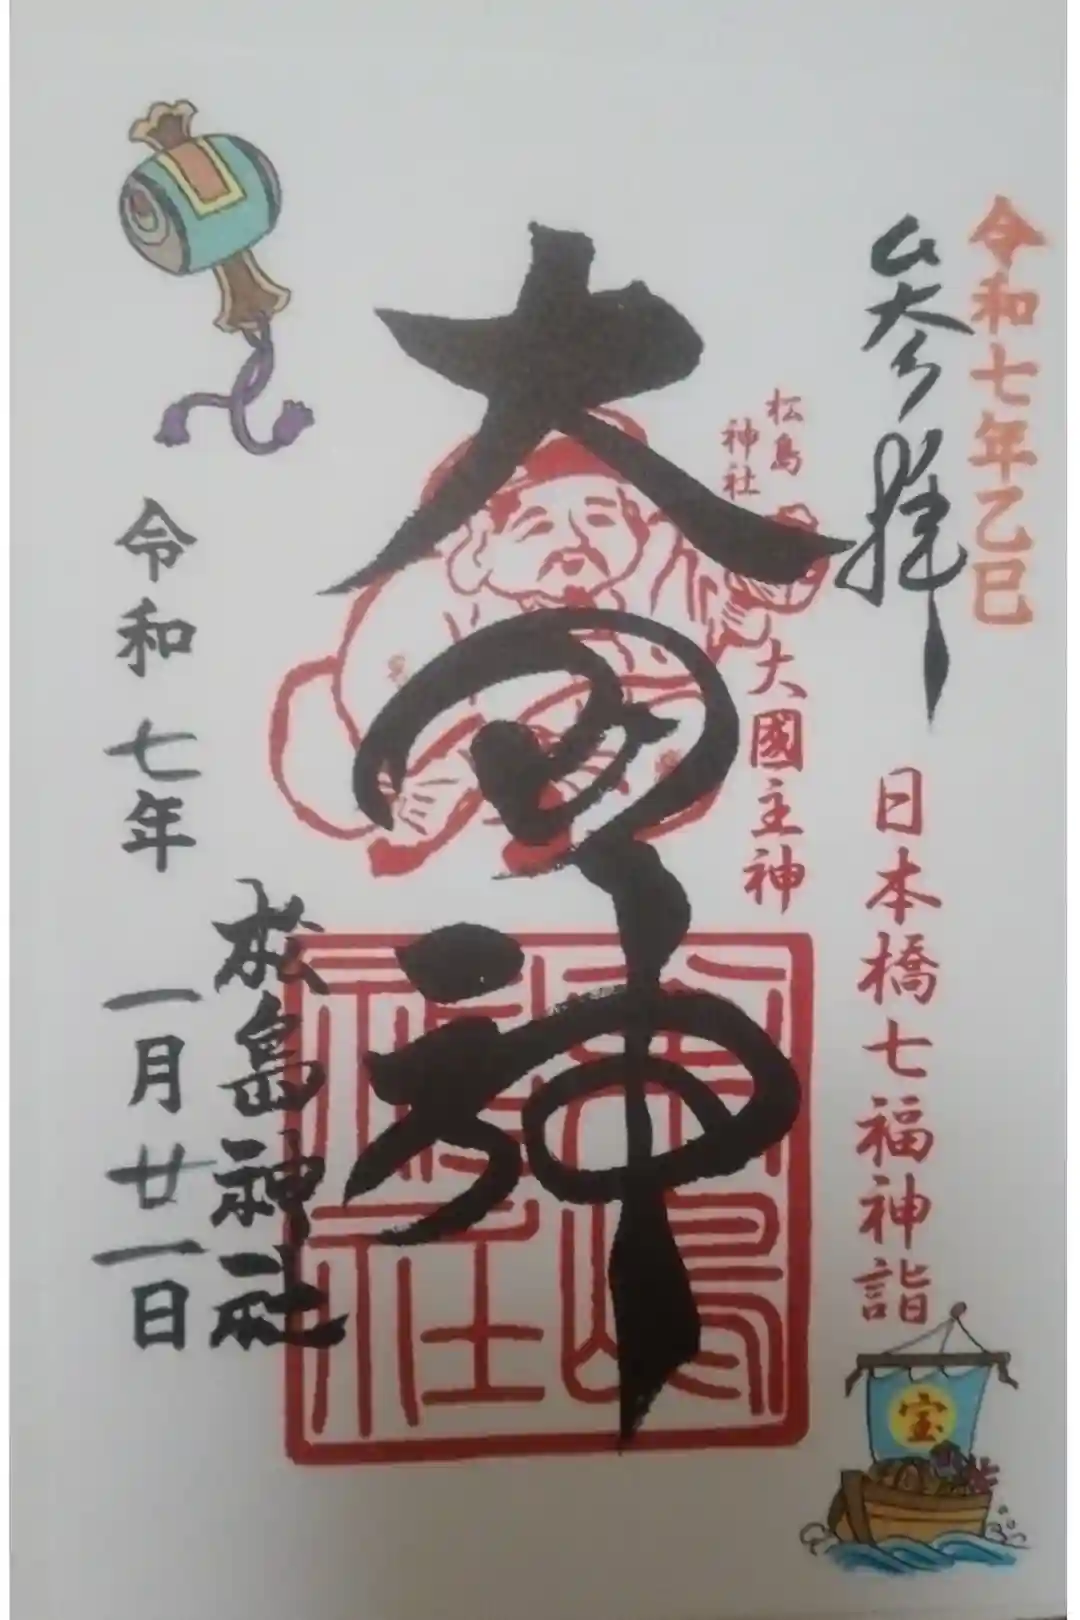 令和七年乙巳
参拝
日本橋七福神詣
宝
松島
神社
大國主神
大国神
松島神社
松島神社
令和七年一月廿一日